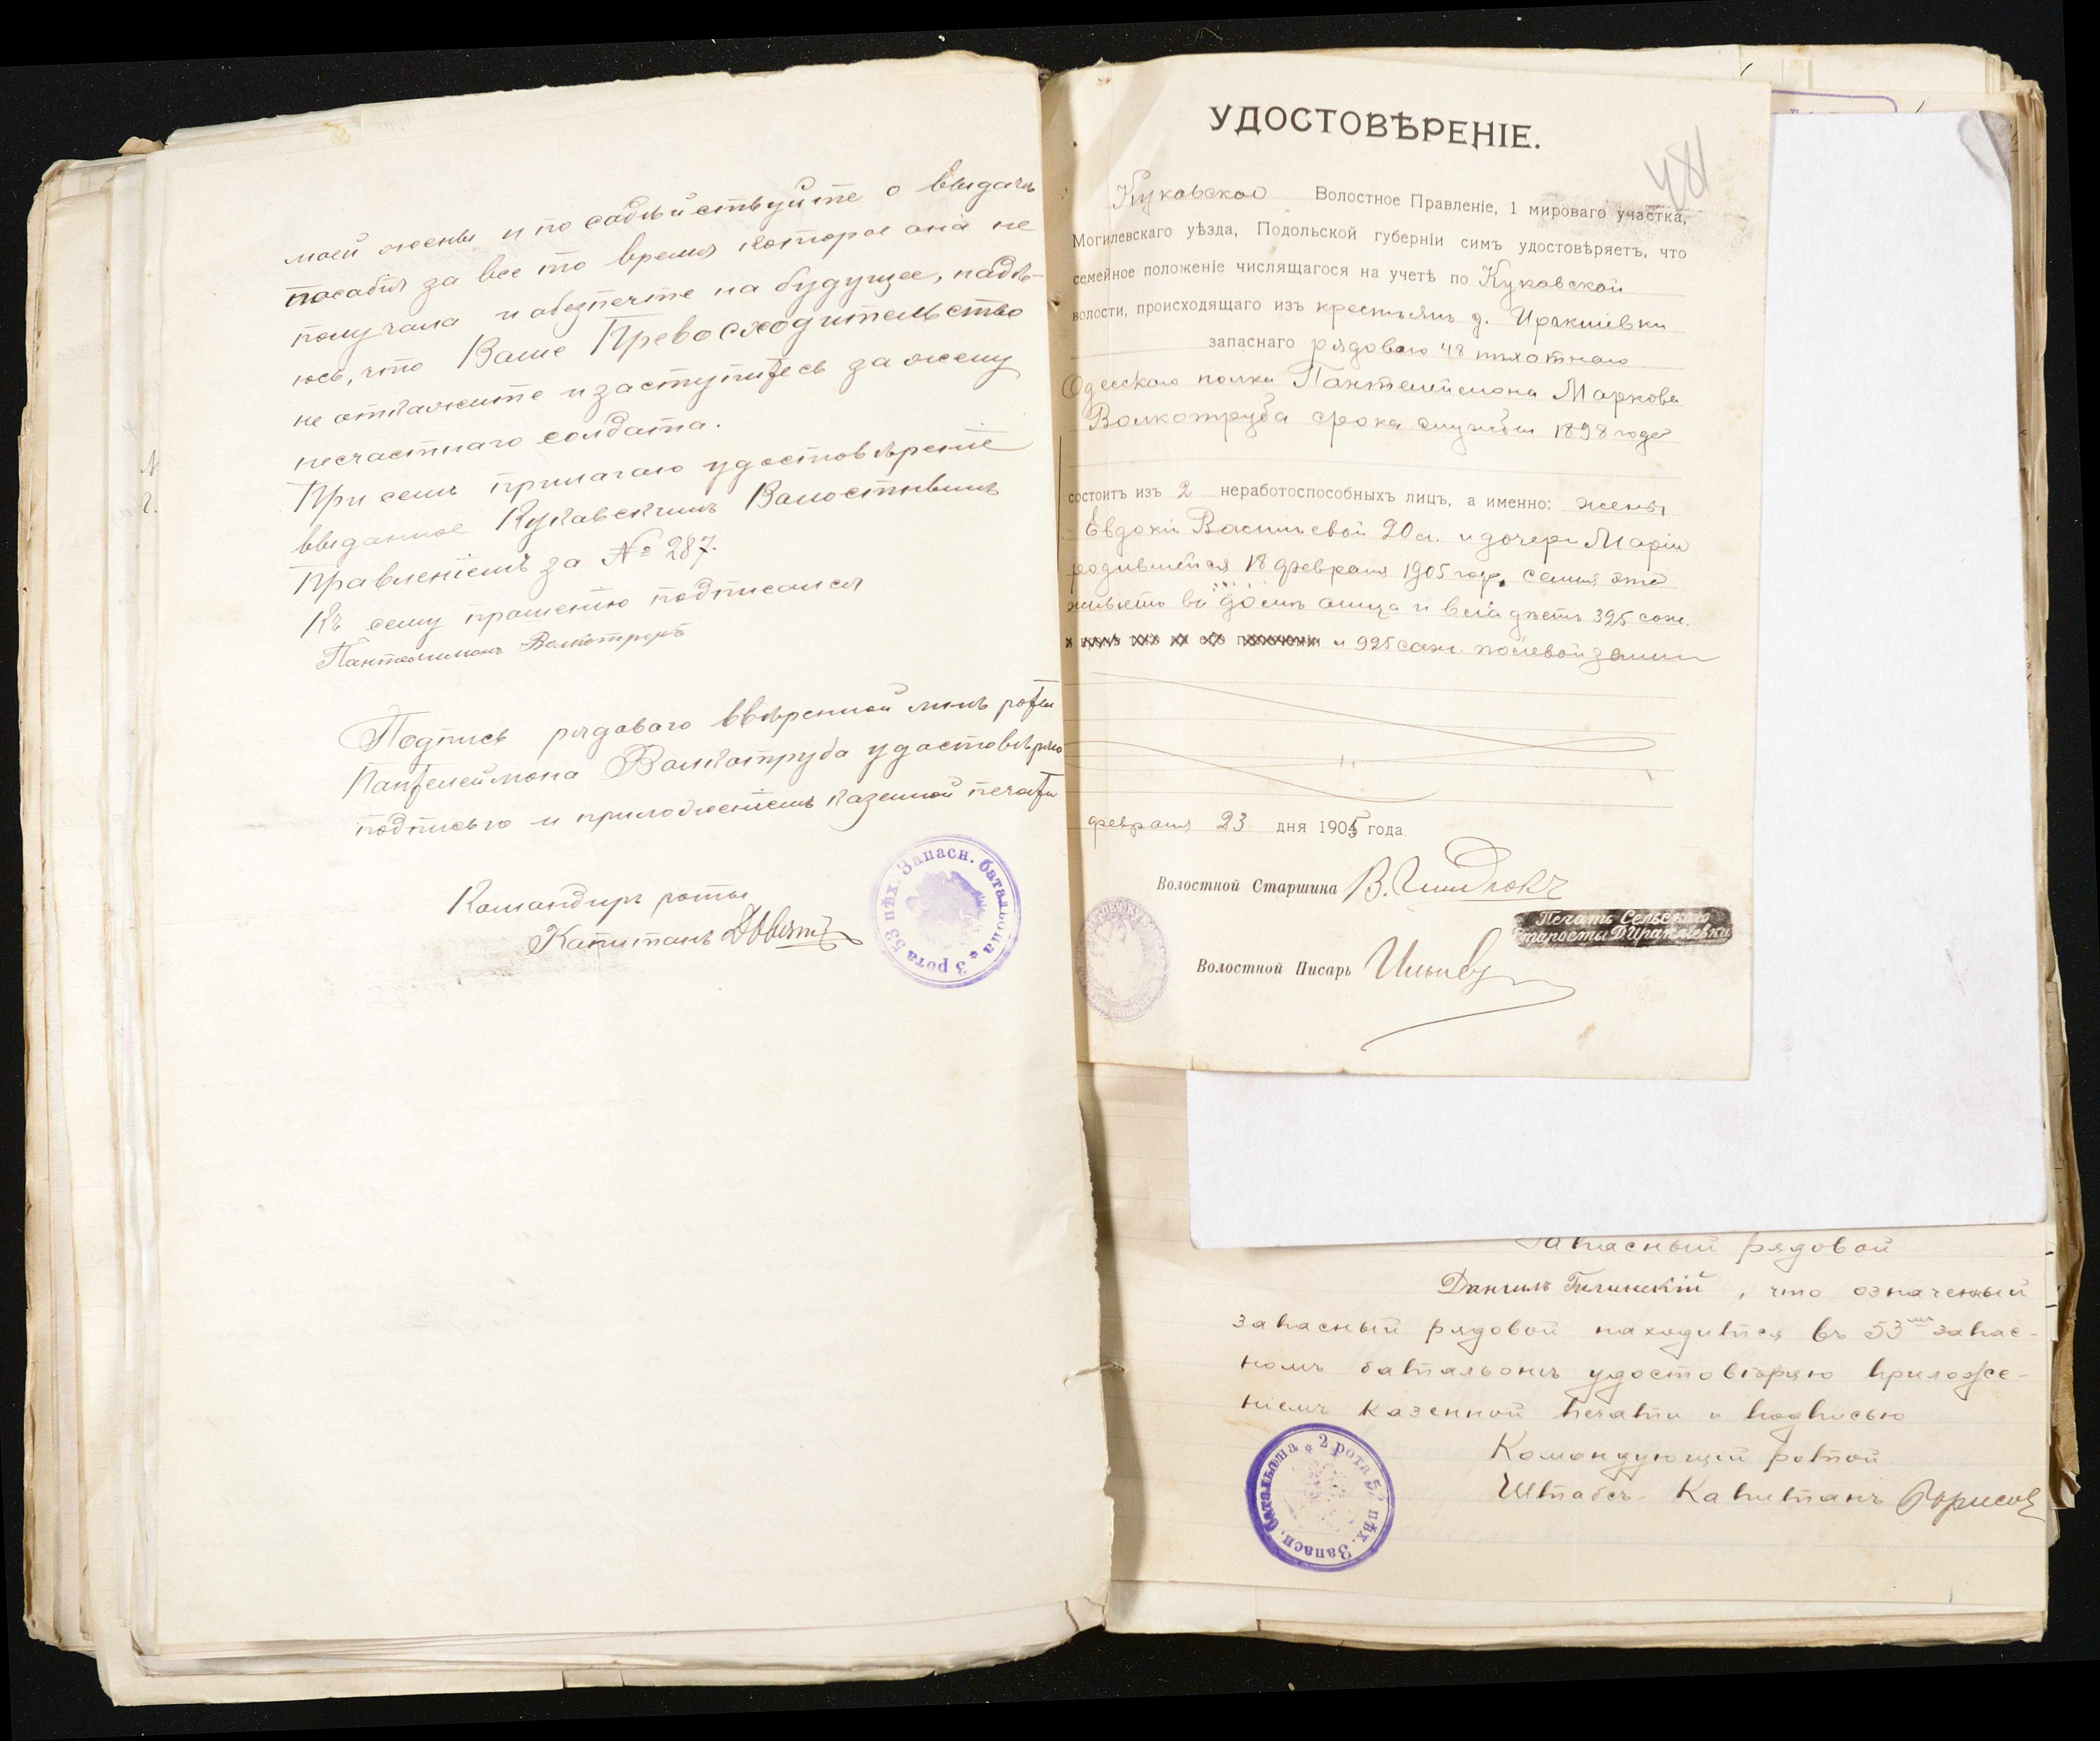 моей жены и по содѣйствуйте о выдачѣ
пособія за все то время которое она не
получала и обезпечте на будущее, надѣ-
юсь, что Ваше Превосходительство
не откажите и заступитесь за жену
несчастнаго солдата.
При семъ прилагаю удостовѣреніе
выданное Кукавскимъ Волостнымъ
Правленіемъ за № 287.
Къ сему прошенію подписался
Пантелимонъ Волкотрубъ
Подпись рядоваго ввѣренной мнѣ роты
Пантелеймона Волкотруба удостовѣряю
подписью и приложеніемъ казенной печати
Командиръ роты
Капитанъ
53 пѣх. Запасн. батальона * 3 рота
УДОСТОВѢРЕНІЕ.
48
Куковское Волостное Правленіе, 1 мироваго участка,
Могилевскаго уѣзда, Подольской губерніи симъ удостовѣряетъ, что
семейное положеніе числящагося на учетѣ по Куковской
волости, происходящаго изъ крестьянъ д. Иракліевки
запаснаго рядового 48 пѣхотнаго
Одесскаго полка Пантелеймона Маркова
Волкотруба срока службы 1898 года
состоитъ изъ 2 неработоспособныхъ лицъ, а именно: жены
Евдокіи Васильевой 20 л. и дочери Маріи
родившейся 18 февраля 1905 года, семья эта
живетъ въ домѣ отца и владѣетъ 325 саж.
и 925 саж. полевой земли
февраля 23 дня 1905 года.
Волостной Старшина В.
Печать Сельскаго
Старосты Д. Иракліевки
Волостной Писарь
Запасный рядовой
Даниилъ Гилинскій, что означенный
запасный рядовой находится въ 53мъ запас-
номъ батальонѣ удостовѣряю приложе-
ніемъ казенной печати и подписью
Командующій ротой
Штабсъ-Капитанъ Борисов
2 рота 53 пѣх. Запасн. батальона *